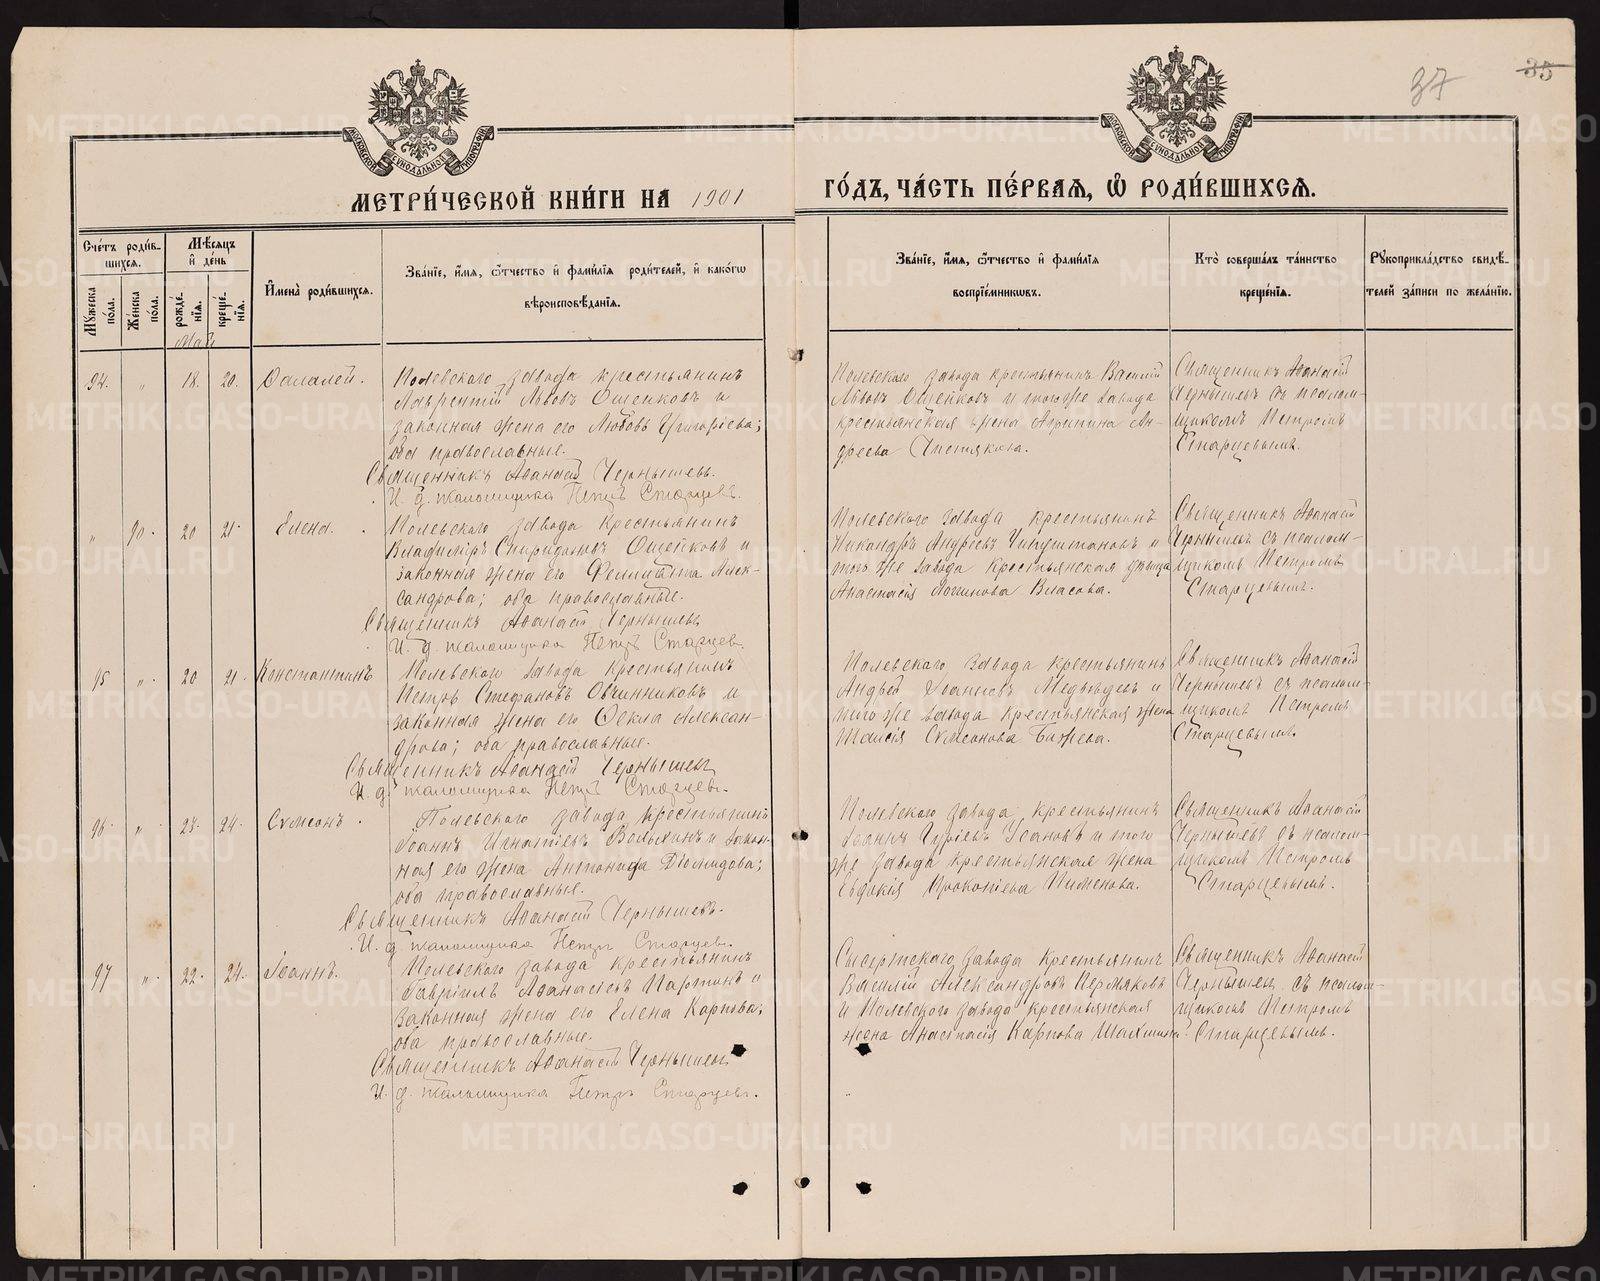 37
35
МОСКОВСКОЙ СѴНОДАЛЬНОЙ ТИПОГРАФІИ
МОСКОВСКОЙ СѴНОДАЛЬНОЙ ТИПОГРАФІИ
МЕТРИ́ЧЕСКОЙ КНИ́ГИ НА 1901
ГО́ДЪ, ЧА́СТЬ ПЕ́РВАЯ, Ѡ҆ РОДИ́ВШИХСЯ.
Сче́тъ роди́в-
шихся.
Мꙋжеска по́ла.
Же́нска по́ла.
Мѣ́сяцъ и҆ де́нь
рожде́-нїя.
креще́-нїя.
И҆мена̀ роди́вшихся.
Зва́нїе, и҆́мя, ѻ҆́тчество и҆ фами́лїя роди́телей, и҆ како́гѡ
вѣроисповѣ́данїя.
Зва́нїе, и҆́мя, ѻ҆́тчество и҆ фами́лїя
воспрїе́мникѡвъ.
Кто̀ соверша́лъ та́инство
креще́нїя.
Рꙋкоприкла́дство свидѣ́-
телей за́писи по жела́нїю.
Май
94. " 18. 20. Ѳалалей.
Полевского завода крестьянинъ
Лаврентій Львовъ Ощепковъ и
законная жена его Любовь Григоріева;
оба православные.
Священникъ Аѳанасій Чернышевъ.
И. д. псаломщика Петръ Старцевъ.
Полевского завода крестьянинъ Василій
Львовъ Ощепковъ и того же завода
крестьянская жена Агрипина Ан-
дреева Чистякова.
Священникъ Аѳанасій
Чернышевъ съ псалом-
щикомъ Петромъ
Старцевымъ.
" 90. 20 21. Елена.
Полевского завода крестьянинъ
Владиміръ Спиридоновъ Ощепковъ и
законная жена его Фелицата Алек-
сандрова; оба православные.
Священникъ Аѳанасій Чернышевъ
И. д. псаломщика Петръ Старцев.
Полевского завода крестьянинъ
Никандръ Андреевъ Чипуштановъ и
того же завода крестьянская дѣвица
Анастасія Логинова Власова.
Священникъ Аѳанасій
Чернышевъ съ псалом-
щикомъ Петромъ
Старцевымъ.
95 " 20 21. Константинъ
Полевского завода крестьянинъ
Петръ Стефановъ Овчинниковъ и
законная жена его Ѳекла Алексан-
дрова; оба православные.
Священникъ Аѳанасій Чернышевъ
И. д. псаломщика Петръ Старцевъ.
Полевского завода крестьянинъ
Андрей Іоанновъ Медвѣдевъ и
того же завода крестьянская жена
Таисія Сѵмеонова Бажева.
Священникъ Аѳанасій
Чернышевъ съ псалом-
щикомъ Петромъ
Старцевымъ.
96. " 23. 24. Сѵмеонъ.
Полевского завода крестьянинъ
Іоаннъ Игнатіевъ Волыхинъ и закон-
ная его жена Антонида Діомидова;
оба православные.
Священникъ Аѳанасій Чернышевъ.
И. д. псаломщика Петръ Старцевъ.
Полевского завода крестьянинъ
Іоаннъ Гуріевъ Усановъ и того
же завода крестьянская жена
Евдокія Прокопіева Пименова.
Священникъ Аѳанасій
Чернышевъ съ псалом-
щикомъ Петромъ
Старцевымъ.
97 " 22. 24. Іоаннъ.
Полевского завода крестьянинъ
Гавріилъ Аѳанасіевъ Партинъ и
законная жена его Елена Карпова;
оба православные.
Священникъ Аѳанасій Чернышевъ
И. д. псаломщика Петръ Старцевъ.
Сысертского завода крестьянинъ
Василій Александровъ Пермяковъ
и Полевского завода крестьянская
жена Анастасія Карпова
Священникъ Аѳанасій
Чернышевъ съ псалом-
щикомъ Петромъ
Старцевымъ.
METRIKI.GASO-URAL.RU